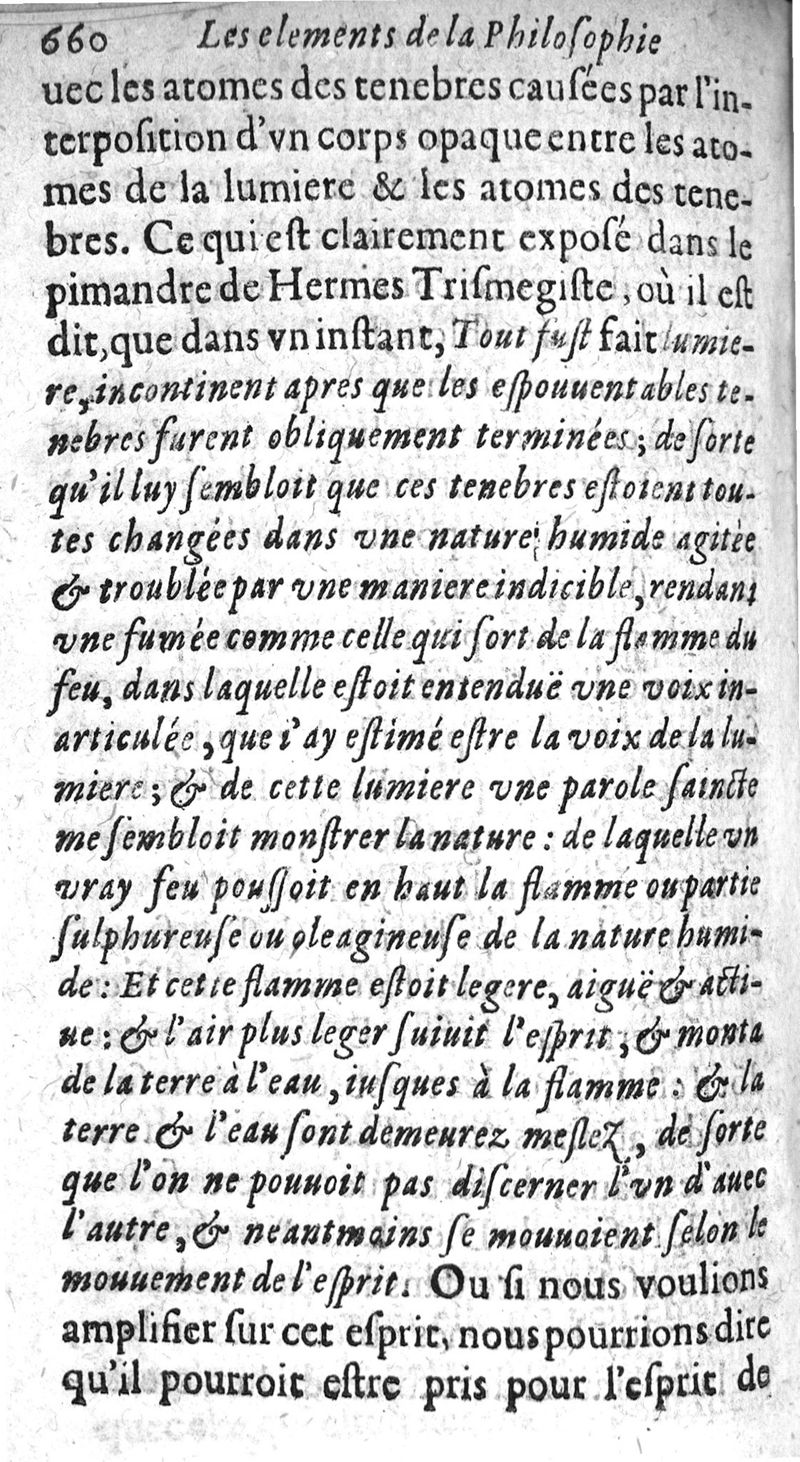 660 Les elements de la Philoſophie
uec les atomes des tenebres cauſées par l'in-
terpoſition d'vn corps opaque entre les ato-
mes de la lumiere & les atomes des tene-
bres. Ce qui eſt clairement expoſé dans le
pimandre de Hermes Triſmegiſte, où il eſt
dit, que dans vn inſtant, Tout fuſt fait lumie-
re, incontinent apres que les eſpouuentables te-
nebres furent obliquement terminées; de ſorte
qu'il luy ſembloit que ces tenebres eſtoient tou-
tes changées dans vne nature humide agitée
& troublée par vne maniere indicible, rendant
vne fumée comme celle qui ſort de la flamme du
feu, dans laquelle eſtoit entenduë vne voix in-
articulée, que i'ay eſtimé eſtre la voix de la lu-
miere; & de cette lumiere vne parole ſaincte
me ſembloit monſtrer la nature: de laquelle vn
vray feu pouſſoit en haut la flamme ou partie
ſulphureuſe ou oleagineuſe de la nature humi-
de: Et cette flamme eſtoit legere, aiguë & acti-
ue: & l'air plus leger ſuiuit l'eſprit, & monta
de la terre à l'eau, iuſques à la flamme: & la
terre & l'eau ſont demeurez meſlez, de ſorte
que l'on ne pouuoit pas diſcerner l'vn d'auec
l'autre, & neantmoins ſe mouuoient ſelon le
mouuement de l'eſprit. Ou ſi nous voulions
amplifier ſur cet eſprit, nous pourrions dire
qu'il pourroit eſtre pris pour l'eſprit de